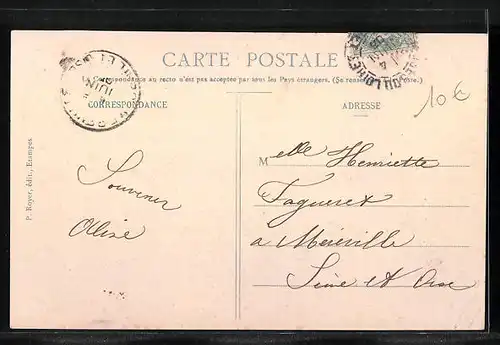 CARTE POSTALE
La Correspondance au recto n'est pas acceptée par tous les Pays étrangers. (Se renseigner à la Poste.)
CORRESPONDANCE
ADRESSE
10 €
Souvenir
M elle Henriette
à Méréville
Seine et Oise
P. Royer, édit., Etampes.
JUIN